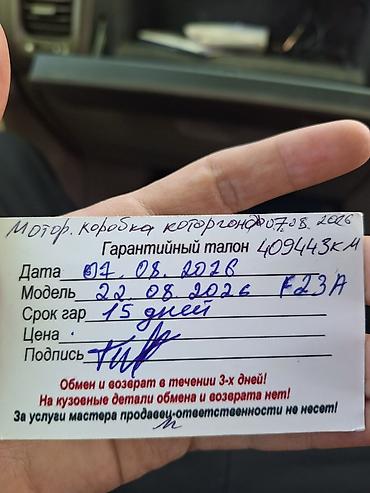 Мотор. коробка которгондо 07.08.2026
Гарантийный талон 409443 км
Дата 07.08.2026
Модель 22.08.2026 F23A
Срок гар 15 дней
Цена
Подпись
Обмен и возврат в течении 3-х дней!
На кузовные детали обмена и возврата нет!
За услуги мастера продавец-ответственности не несет!